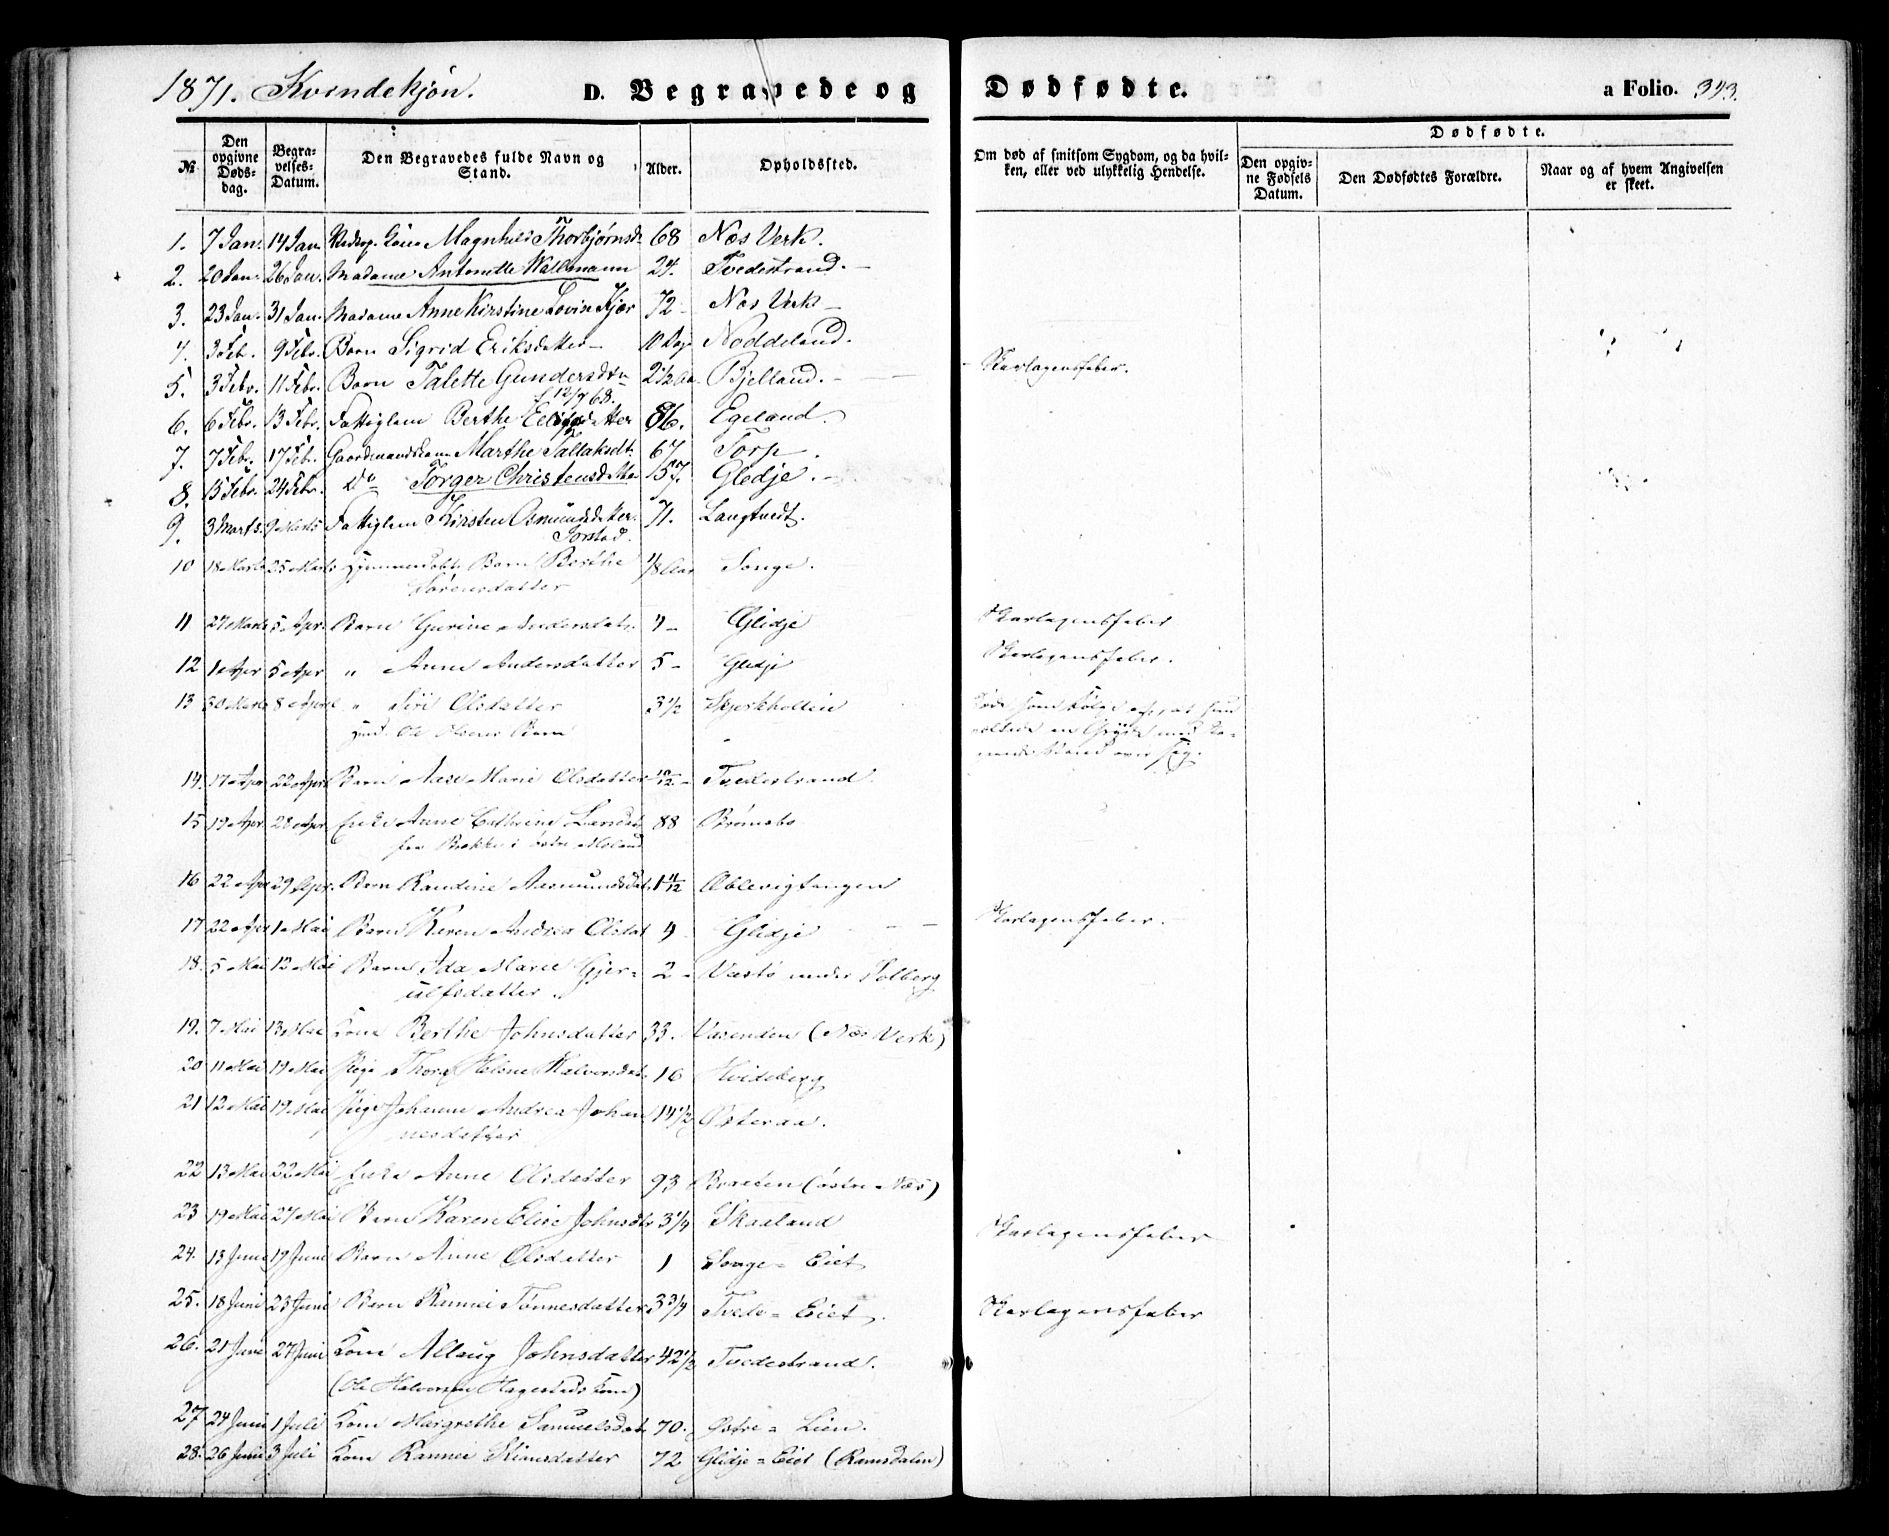 1871. Kvindekjøn. D. Begravede og Dødfødte. a Folio. 343.
Dødfødte.
№ Den opgivne Dødsdag. Begravelses-Datum. Den Begravedes fulde Navn og Stand. Alder. Opholdssted. Om død af smitsom Sygdom, og da hvilken, eller ved ulykkelig Hendelse. Den opgivne Fødsels Datum. Den Dødfødtes Forældre. Naar og af hvem Angivelsen er skeet.
1. 7 Jan. 14 Jan. Kone Magnhild Thorbjørnsd. 68 Næs Verk.
2. 20 Jan. 26 Jan. Madame Antonette Wallmann 24. Tvedestrand.
3. 23 Jan. 31 Jan. Madame Anne Kirstine Lovine Kjær 72 Næs Verk
4. 3 Feb. 9 Febr. Barn Sigrid Eriksdatter 10 Dag Noddeland.
5. 3 Febr. 11 Febr. Barn Talette Gundersdtr 2 1/2 Aar Bjelland. Skarlagensfeber.
f. 12/7 68.
6. 6 Febr. 13 Febr. Fattiglem Berthe 86. Egeland.
7. 7 Febr. 17 Febr. Gaardmandskone Marthe Tallaksdt. 67 Torp.
8. 15 Febr. 24 Febr. Do Torger Christensdatter 57. Gledje.
9. 3 Marts. 9 Marts Fattiglem Kirsten Osmundsdatter. 71. Langtvedt.
Torstad.
10 18 Marts 25 Marts Hjemmedøbt Barn Berthe 1/8 Aar Songe.
Sørensdatter
11 27 Marts 5 Apr. Barn Gurine Andersdatr. 7 Glidje Skarlagensfeber
12 1 Apr 5 Apr " Anne Andersdatter 5 Glidje Skarlagensfeber.
13 30 Marts 8 April " Siri Olsdatter 3 1/2 Skjerkholten Døde som Følge af, at hun
Ole Barn en Gryde med
Vand over sig.
14. 17 Apr 22 Apr Barn Aase Marie Olsdatter 10/12 Tvedestrand.
15 19 Apr 28 Apr Enke Anne Cathrine Larsdat. 88 Brømsbo
fra Brække i østre Moland
16 22 Apr 29 Apr. Barn Randine Aasmundsdat. 1 11/12 Ablevigtangen
17 22 Apr 1 Mai Barn Karen Andrea Olsdat 9 Glidje Skarlagensfeber.
18. 5 Mai 12 Mai Barn Ida Marie Gjer- 2 Vastø under Solberg
ulfsdatter.
19. 7 Mai 13 Mai Kone Berthe Johnsdatter 33. Vasenden (Næs Verk)
20 11 Mai 19 Mai Pige Thora Helene Halvorsdat. 16 Hvideberg
21 12 Mai 19 Mai Pige Johanne Andrea Johan 14 1/2 Østeraa.
nesdatter
22 13 Mai 22 Mai Enke Anne Olsdatter 93 Braaten (østre Næs)
23 19 Mai 27 Mai Barn Karen Elise Johnsdtr 3 1/4 Skaaland Skarlagensfeber
24. 13 Juni 19 Juni Barn Anne Olsdatter 1 Songe-Eiet
25. 18 Juni 23 Juni Barn Rannei Tønnesdatter 3 3/4 Tvede-Eiet. Skarlagensfeber
26. 21 Juni 27 Juni Kone Allaug Johnsdatter 42 1/2 Tvedestrand.
(Ole Halvorsen Hagestads Kone)
27 24 Juni 1 Juli Kone Margrethe Samuelsdat. 70. Østre-Lien.
28. 26 Juni 3 Juli Kone Rannei Stiansdatter 72 Glidje-Eiet (Ramsdalen)